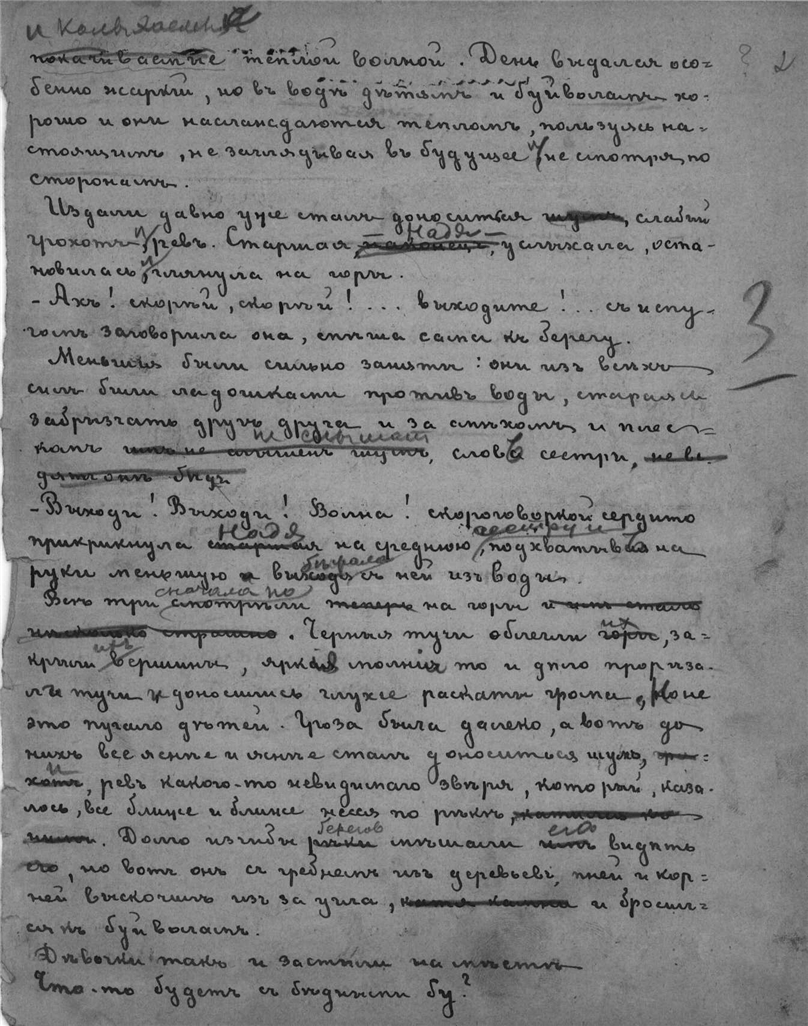 и колыхаемыя
покачиваемые теплой волной. День выдался осо=
бенно жаркій, но въ водѣ дѣтямъ и буйволамъ хо-
рошо и они наслаждаются тепломъ, пользуясь на=
стоящимъ, не заглядывая въ будущее и не смотря по
сторонамъ.
Издали давно уже сталъ доноситься шумъ, слабый
грохотъ и ревъ. Старшая, – Надя – наконецъ, услыхала, оста-
новилась и глянула на горы.
– Ахъ! скорѣй, скорѣй!... выходите!.. съ испу-
гомъ заговорила она, спѣша сама къ берегу.
Меньшія были сильно заняты: они изъ всѣхъ
силъ били ладошками противъ воды, стараясь
забрызгать другъ друга и за смѣхомъ и плес=
комъ не слышали слова сестры,
– Выходи! Выходи! Волна! скороговоркой сердито
прикрикнула Надя старшая на среднюю сестру и, подхватывая на
руки меньшую и бѣжала съ ней изъ воды.
Всѣ три сначала по смотрѣли теперь на горы и имъ стало
нисколько страшно. Черныя тучи облегли ихъ горы, за=
крыли ихъ вершины, яркая молнія то и дѣло прорѣза-
ла тучи и доносились глухіе раскаты грома. Но не
это пугало дѣтей. Гроза была далеко, а вотъ до
нихъ все яснѣе и яснѣе сталъ доноситься шумъ, гро-
хотъ и, ревъ какого-то невидимаго звѣря, который, каза-
лось, все ближе и ближе несся по рѣкѣ,
Долго изгибы береговъ рѣки мѣшали имъ его видѣть
его, но вотъ онъ съ гребнемъ изъ деревьевъ, пней и кор=
ней выскочилъ изъ за угла, катя камни и бросил=
ся къ буйволамъ.
Дѣвочки такъ и застыли на мѣстѣ
Что-то будетъ съ бѣдными бу?
? 2
3